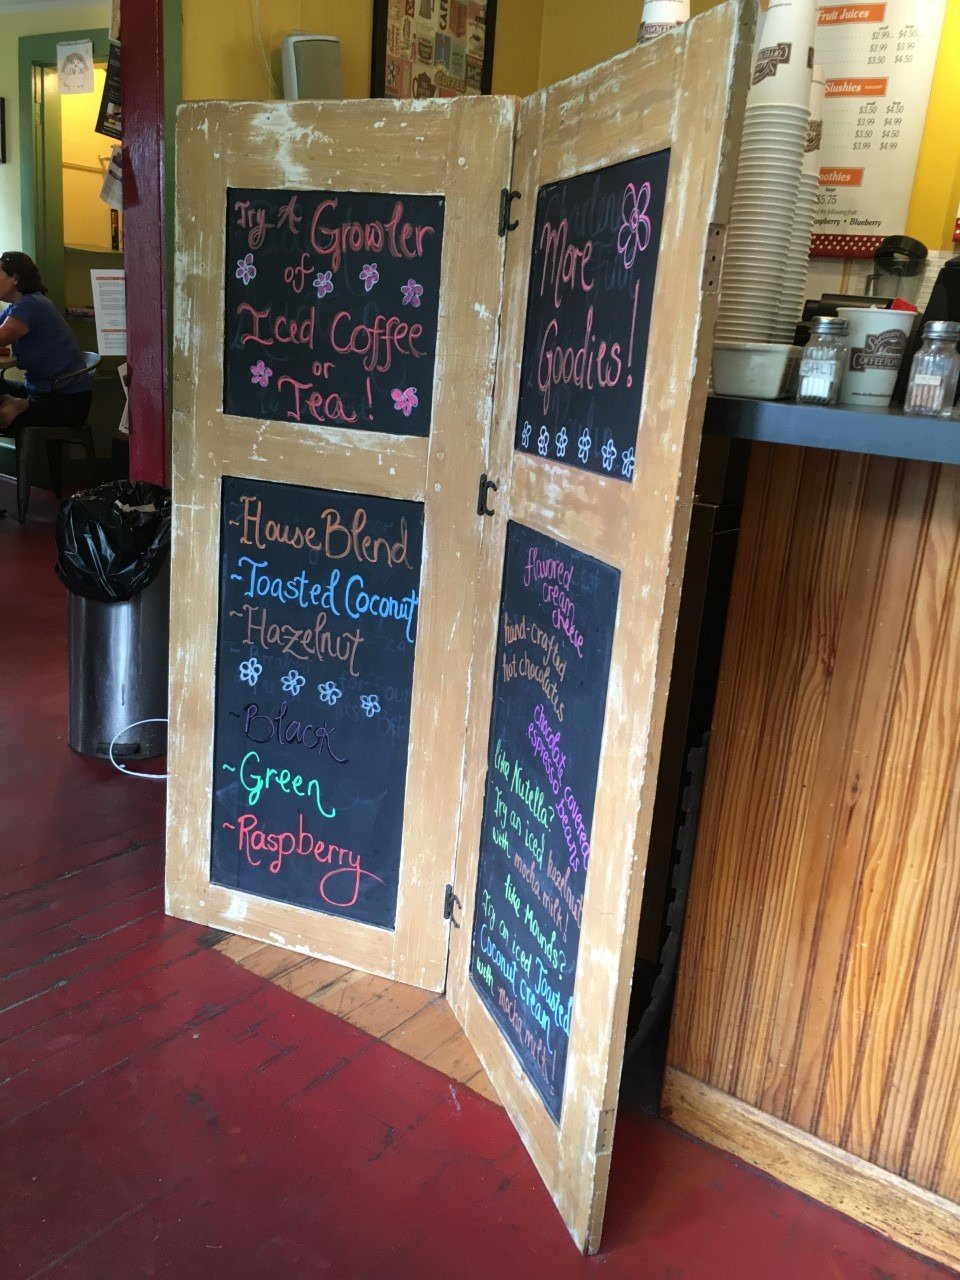 Try A Growler
of
Iced Coffee
or
Tea!
~House Blend
~Toasted Coconut
~Hazelnut
~Black
~Green
~Raspberry
More
Goodies!
flavored
cream
cheese
hand-crafted
hot chocolates
chocolate covered
espresso beans
like Nutella?
Try an iced hazelnut
with mocha milk!
like Mounds?
Try an iced Toasted
Coconut Cream
with mocha milk!
Fruit Juices
$2.99 $4.50
$2.99 $3.99
$3.50 $4.50
Slushies
small large
$3.50 $4.50
$3.99 $4.99
$3.50 $4.50
$3.99 $4.99
oothies
large
$5.75
aspberry • Blueberry
SALT
COFFEE